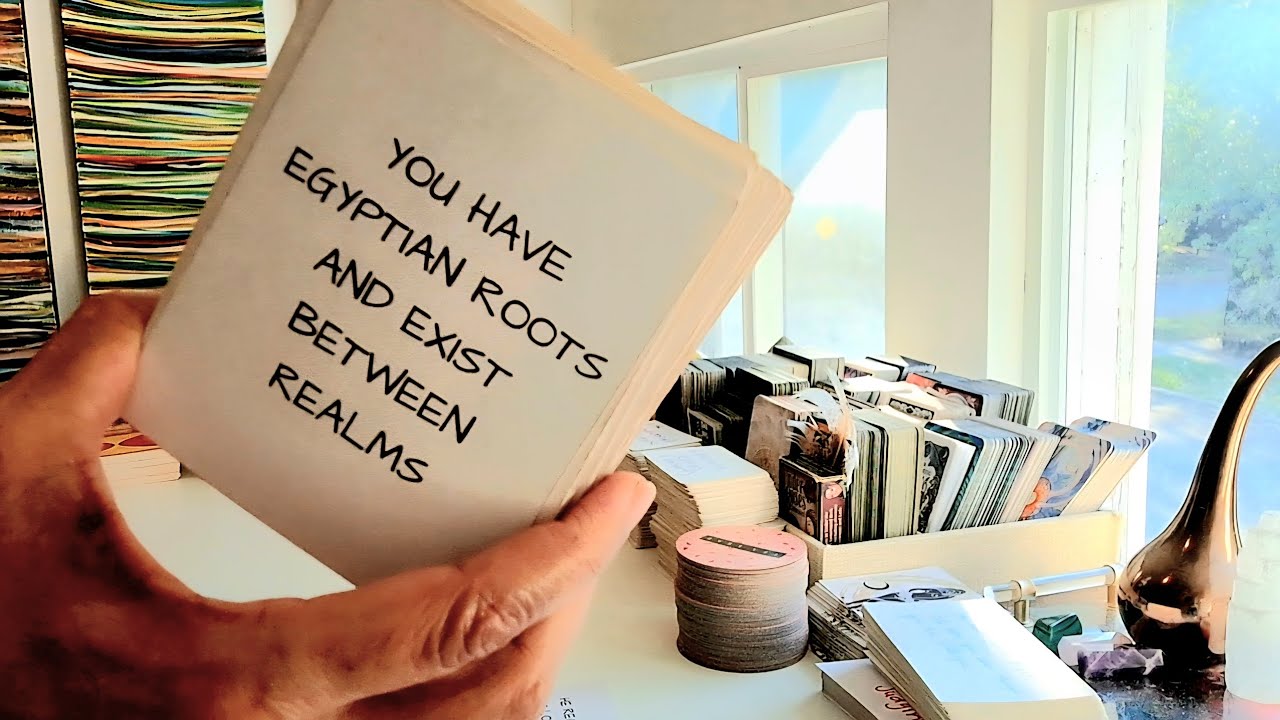 YOU HAVE
EGYPTIAN ROOTS
AND EXIST
BETWEEN
REALMS